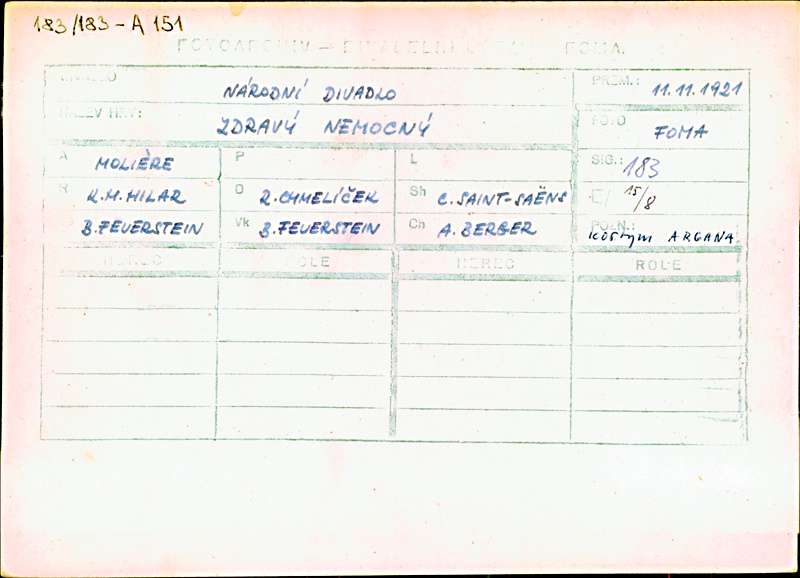 183/183 - A 151
FOTOARCHIV — FOMA
DIVADLO
NÁRODNÍ DIVADLO
PREM.: 11.11.1921
NÁZEV HRY:
ZDRAVÝ NEMOCNÝ
FOTO FOMA
A MOLIÈRE P L SIG.: 183
R K.M.HILAR D R.CHMELÍČEK Sh C.SAINT-SAËNS E/ 15/8
B.FEUERSTEIN Vk B.FEUERSTEIN Ch A.BERGER POZN.: kostym ARGANA
HEREC ROLE HEREC ROLE